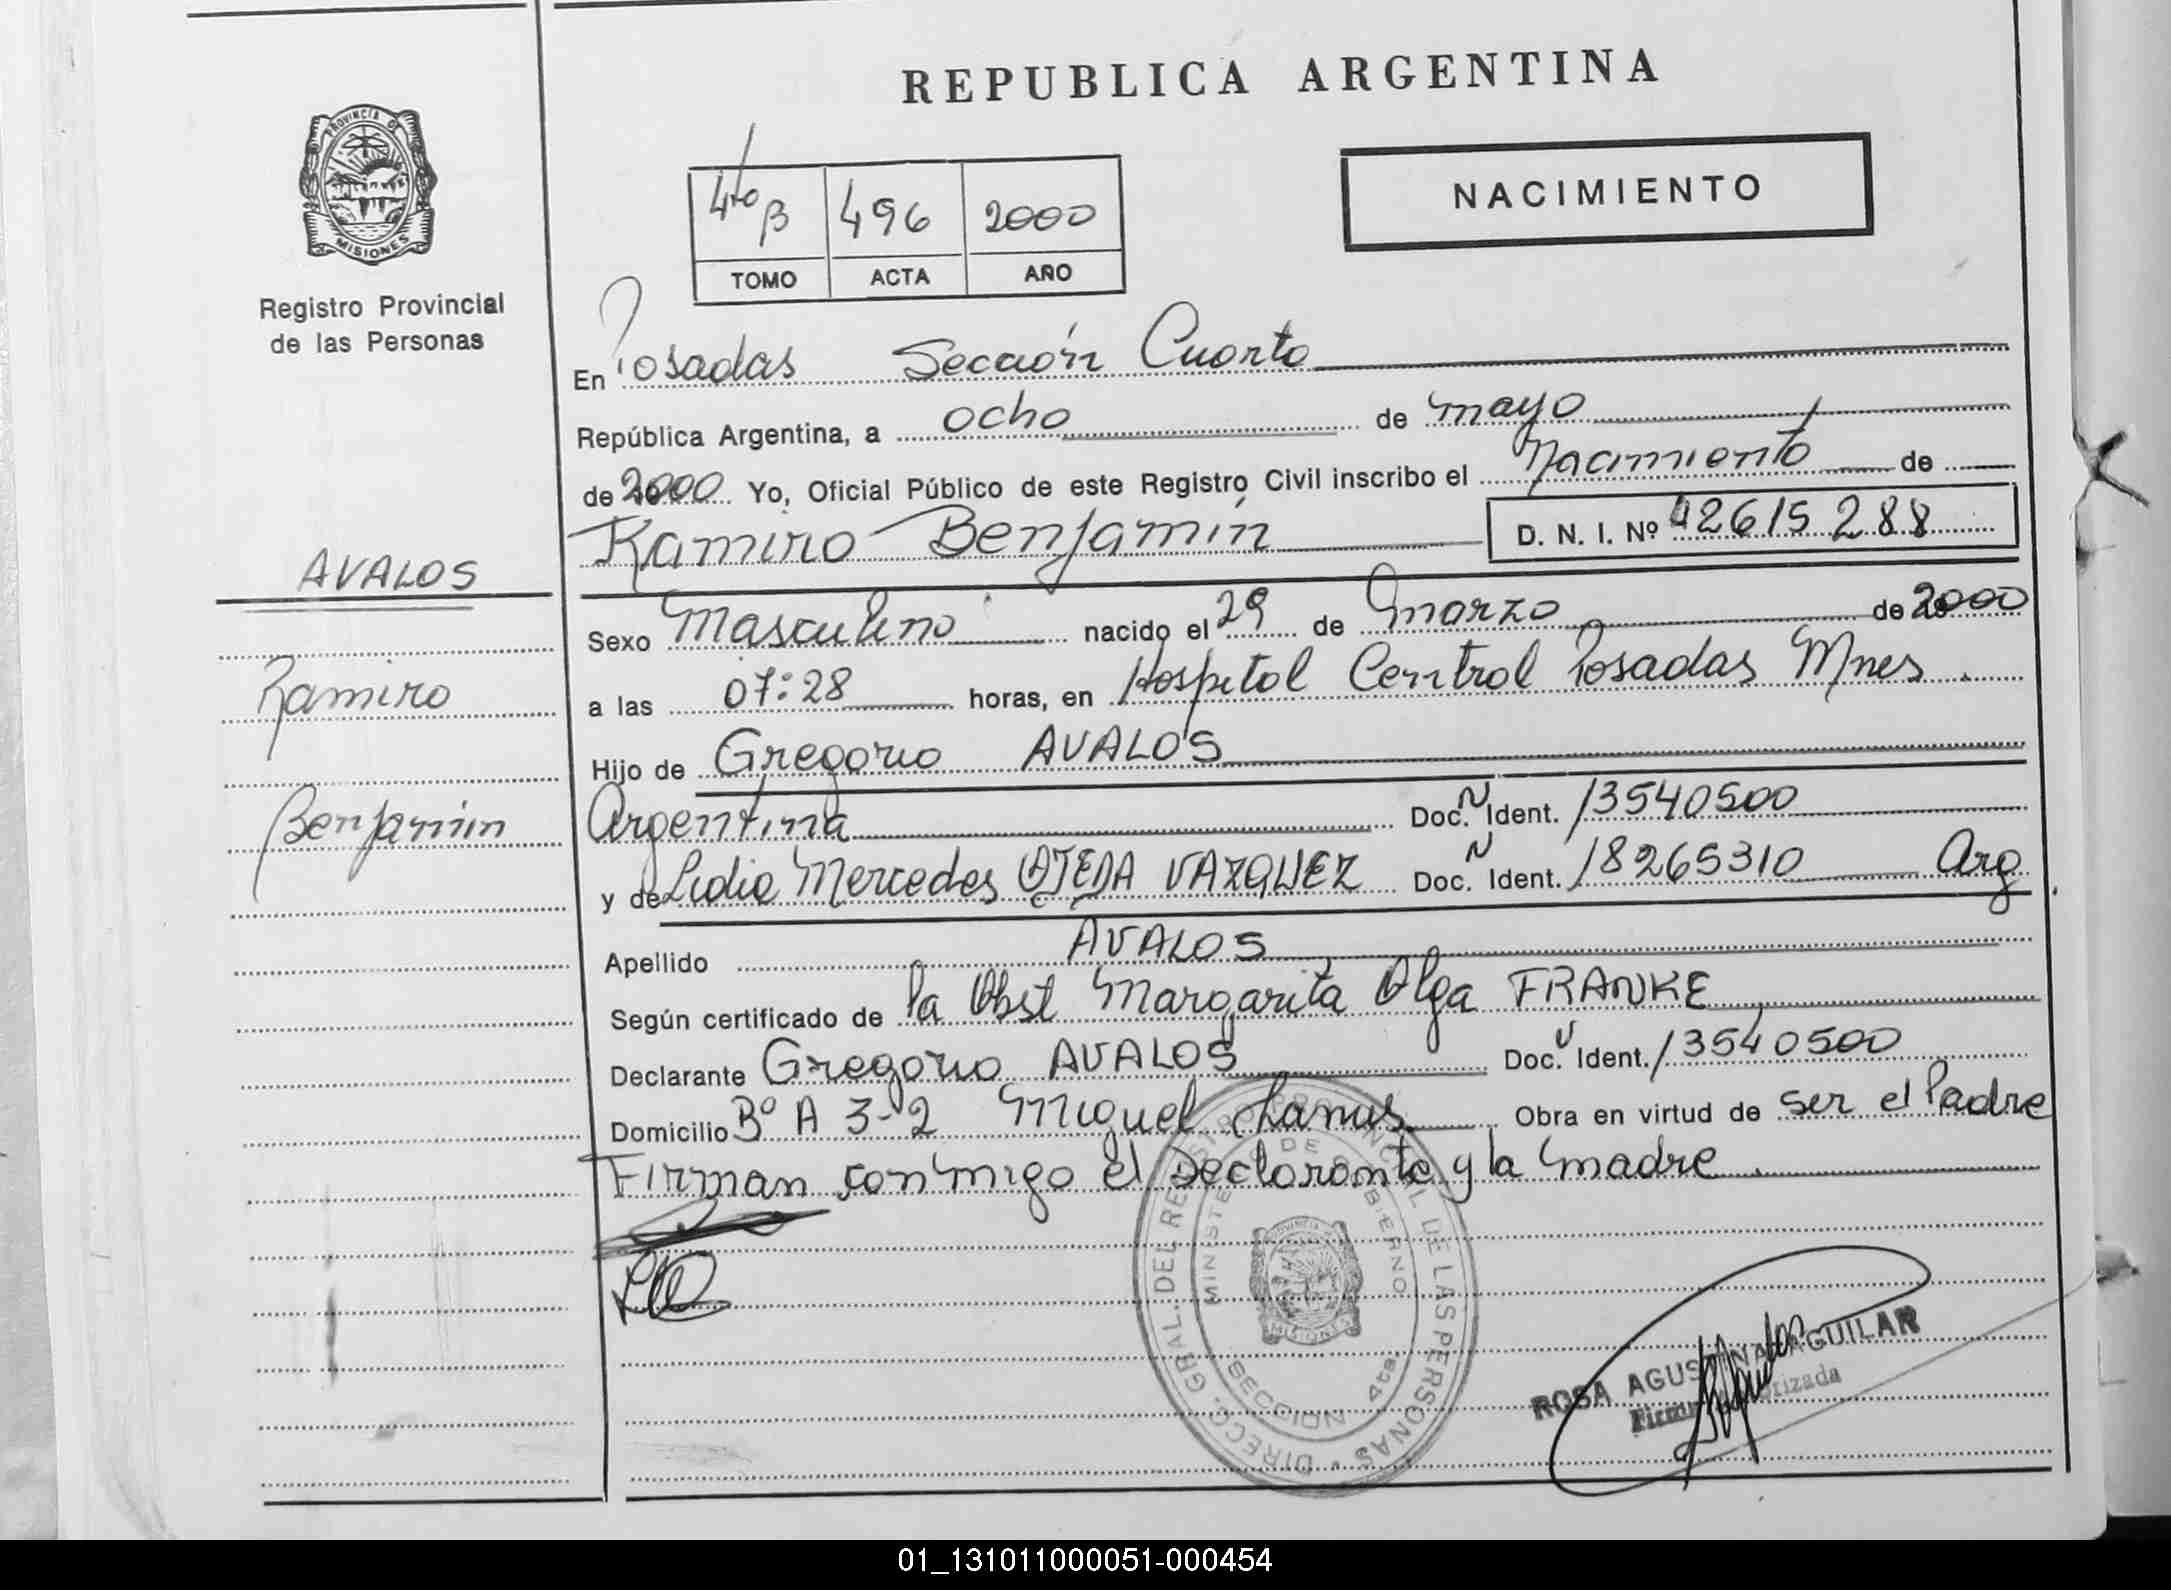 REPUBLICA ARGENTINA
PROVINCIA DE
MISIONES
Registro Provincial
de las Personas
4to B 496 2000
TOMO ACTA AÑO
NACIMIENTO
En Posadas Sección Cuarta
República Argentina, a ocho de mayo
de 2000 Yo, Oficial Público de este Registro Civil inscribo el Nacimiento de
Ramiro Benjamín D. N. I. Nº 42615288
AVALOS
Ramiro
Benjamin
Sexo Masculino nacido el 29 de Marzo de 2000
a las 07:28 horas, en Hospital Central Posadas Mnes.
Hijo de Gregorio AVALOS
Argentina Doc. N Ident. 13540500
y de Lidia Mercedes OJEDA VAZQUEZ Doc. N Ident. 18265310 Arg
Apellido AVALOS
Según certificado de la Obst Margarita Olga FRANKE
Declarante Gregorio AVALOS Doc. Ident. 13540500
Domicilio Bº A 3-2 Miguel Lanus Obra en virtud de ser el Padre
Firman conmigo el Declarante y la madre.
DIRECC. GRAL. DEL REGISTRO PROVINCIAL DE LAS PERSONAS
MINISTERIO DE GOBIERNO
PROVINCIA
MISIONES
SECCION 4ta.
ROSA AGUSTINA AGUILAR
Firma Autorizada
01_131011000051-000454